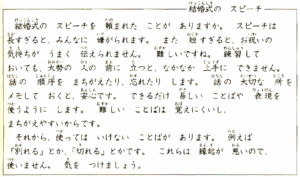 結婚式の スピーチ
結婚式の スピーチを 頼まれた ことが ありますか。 スピーチは
長すぎると、みんなに 嫌がられます。 また 短すぎると、お祝いの
気持ちが うまく 伝えられません。 難しいですね。 練習して
おいても、大勢の 人の 前に 立つと、なかなか 上手に できません。
話の 順序を まちがえたり、忘れたり します。 話の 大切な 所を
メモして おくと、安心です。 できるだけ 易しい ことばや 表現を
使うように します。 難しい ことばは 覚えにくいし、
まちがえやすいからです。
それから、使っては いけない ことばが あります。 例えば
「別れる」とか、「切れる」とかです。 これらは 縁起が 悪いので、
使いません。 気を つけましょう。